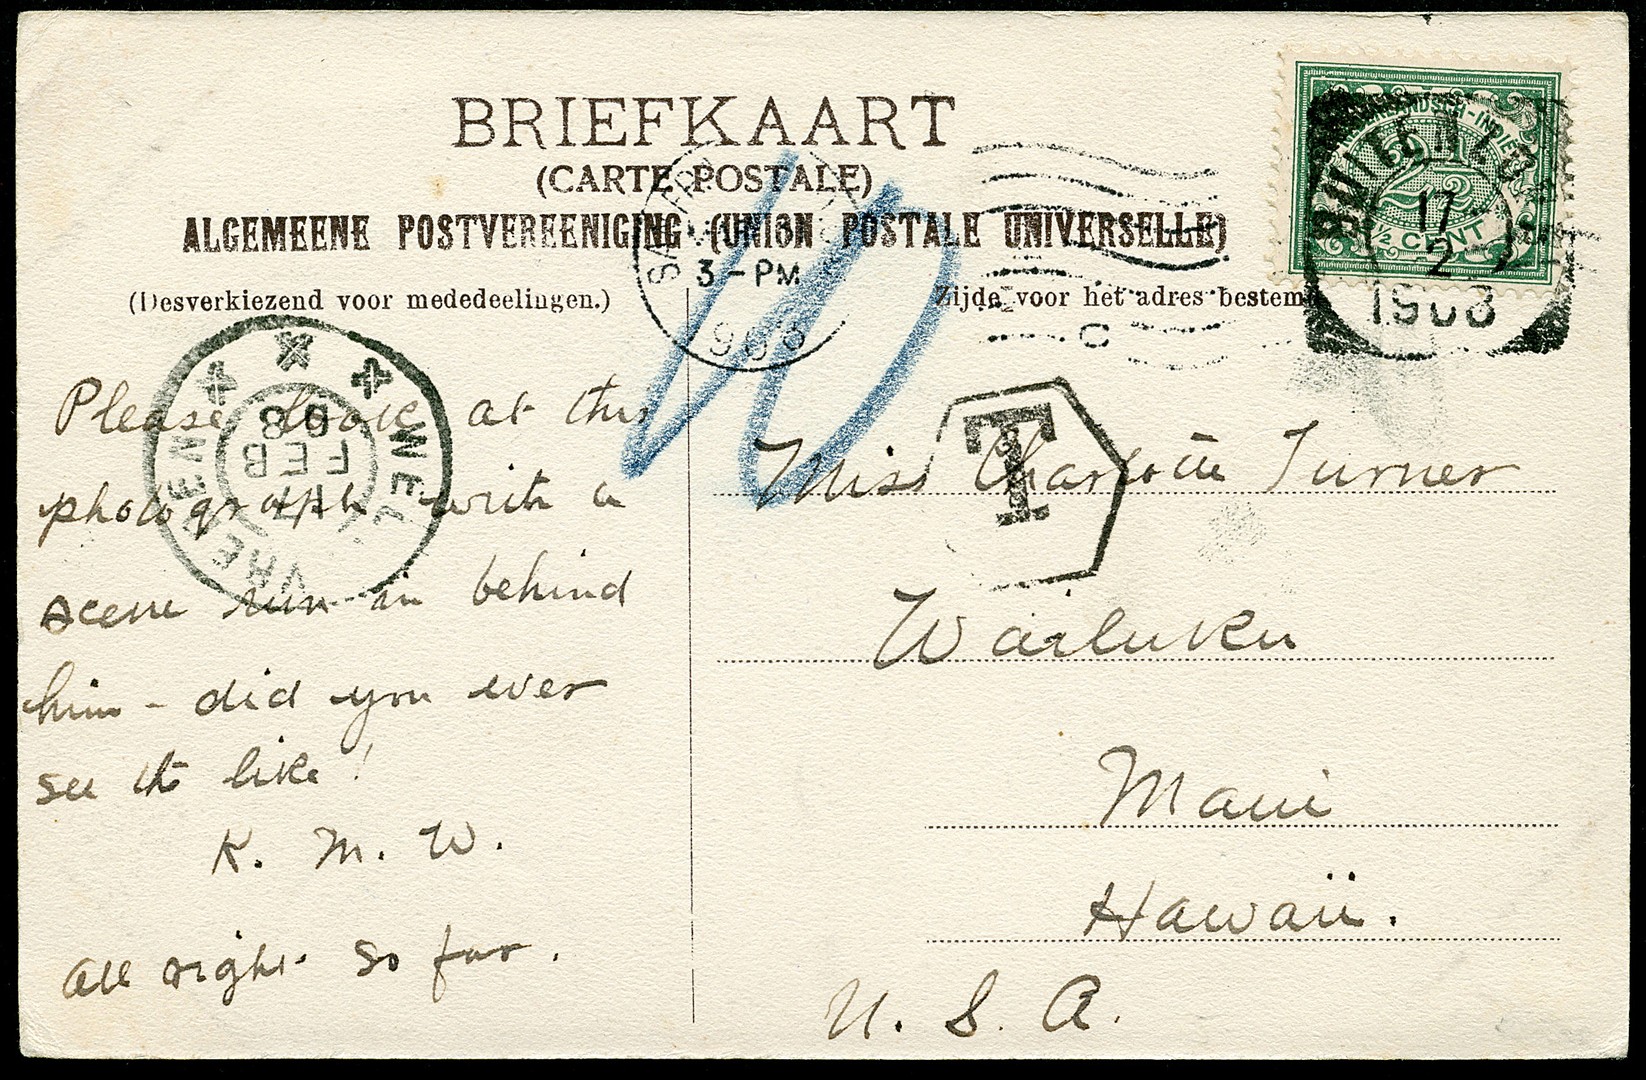 BRIEFKAART
(CARTE POSTALE)
ALGEMEENE POSTVEREENIGING (UNION POSTALE UNIVERSELLE)
(Desverkiezend voor mededeelingen.)
Zijde voor het adres bestem
3-PM
17
2
1908
½ CENT
2½
WELTEVREDEN
17
FEB
08
T
10
Please look at this
photograph with a
scene run in behind
him - did you ever
see its like!
K. M. W.
All right so far.
Miss Charlotte Turner
Wailuku
Maui
Hawaii.
U. S. A.